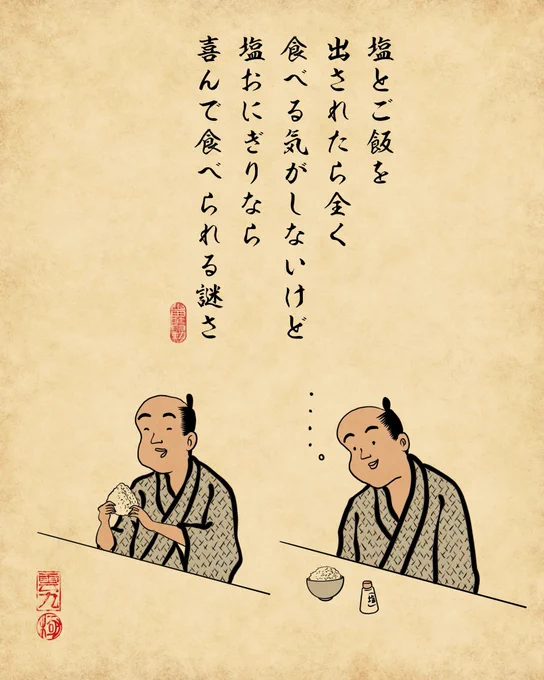 塩とご飯を
出されたら全く
食べる気がしないけど
塩おにぎりなら
喜んで食べられる謎さ
塩